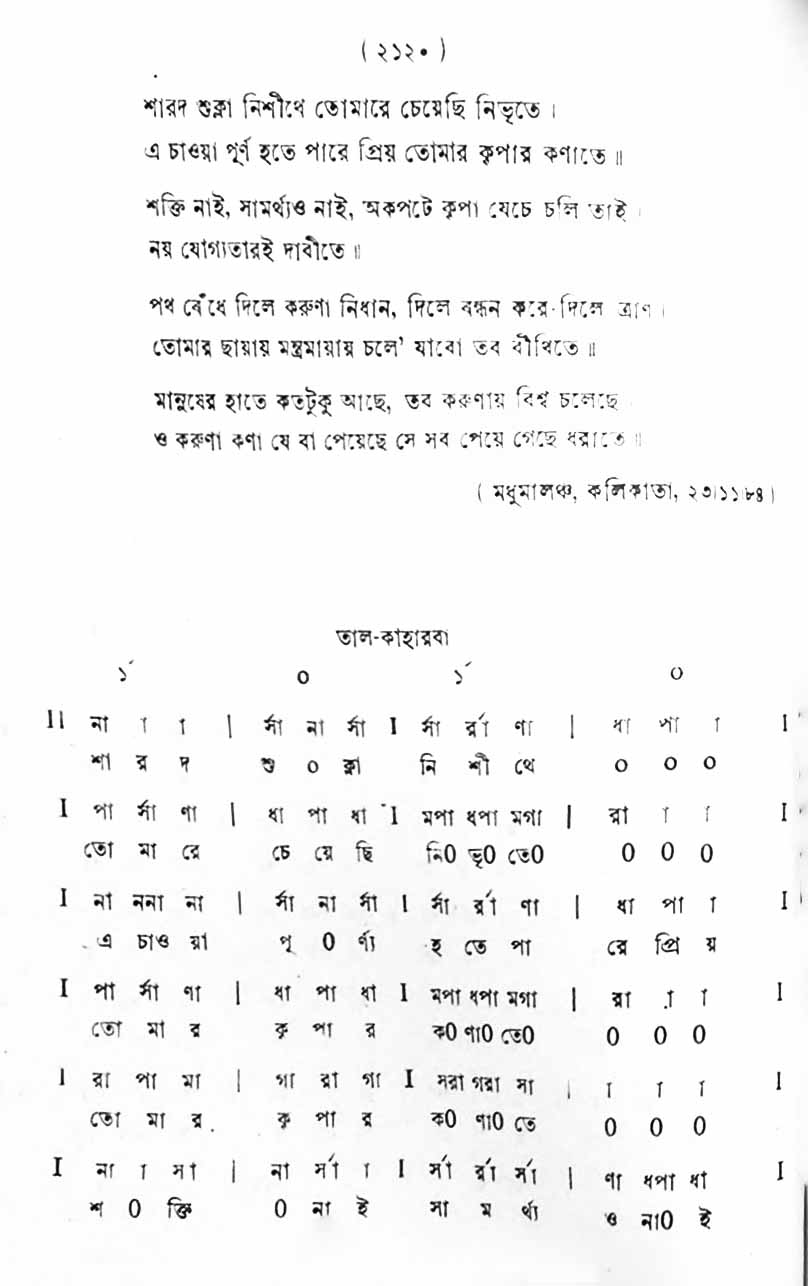 ( ২১২০ )
শারদ শুক্লা নিশীথে তোমারে চেয়েছি নিভৃতে ।
এ চাওয়া পূর্ণ হতে পারে প্রিয় তোমার কৃপার কণাতে ॥
শক্তি নাই, সামর্থ্যও নাই, অকপটে কৃপা যেচে চলি তাই ।
নয় যোগ্যতারই দাবীতে ॥
পথ বেঁধে দিলে করুণা নিধান, দিলে বন্ধন করে দিলে ত্রাণ ।
তোমার ছায়ায় মন্ত্রমায়ায় চলে' যাবো তব বীথিতে ॥
মানুষের হাতে কতটুকু আছে, তব করুণায় বিশ্ব চলেছে
ও করুণা কণা যে বা পেয়েছে সে সব পেয়ে গেছে ধরাতে ॥
( মধুমালঞ্চ, কলিকাতা, ২৩।১১।৮৪ )
তাল-কাহারবা
১´ ০ ১´ ০
II না া া | র্সা না র্সা I র্সা র্রা ণা | ধা পা া I
শা র দ শু ০ ক্লা নি শী থে ০ ০ ০
I পা র্সা ণা | ধা পা ধা I মপা ধপা মগা | রা া া I
তো মা রে চে য়ে ছি নি0 ভৃ0 তে0 0 0 0
I না ননা না | র্সা না র্সা I র্সা র্রা ণা | ধা পা া I
এ চাও য়া পূ 0 র্ণ্য হ তে পা রে প্রি য়
I পা র্সা ণা | ধা পা ধা I মপা ধপা মগা | রা া া I
তো মা র কৃ পা র ক0 ণা0 তে0 0 0 0
I রা পা মা | গা রা গা I সরা গরা সা | া া া I
তো মা র কৃ পা র ক0 ণা0 তে 0 0 0
I না া সা | না র্সা া I র্সা র্রা র্সা | ণা ধপা ধা I
শ 0 ক্তি 0 না ই সা ম র্থ্য ও না0 ই